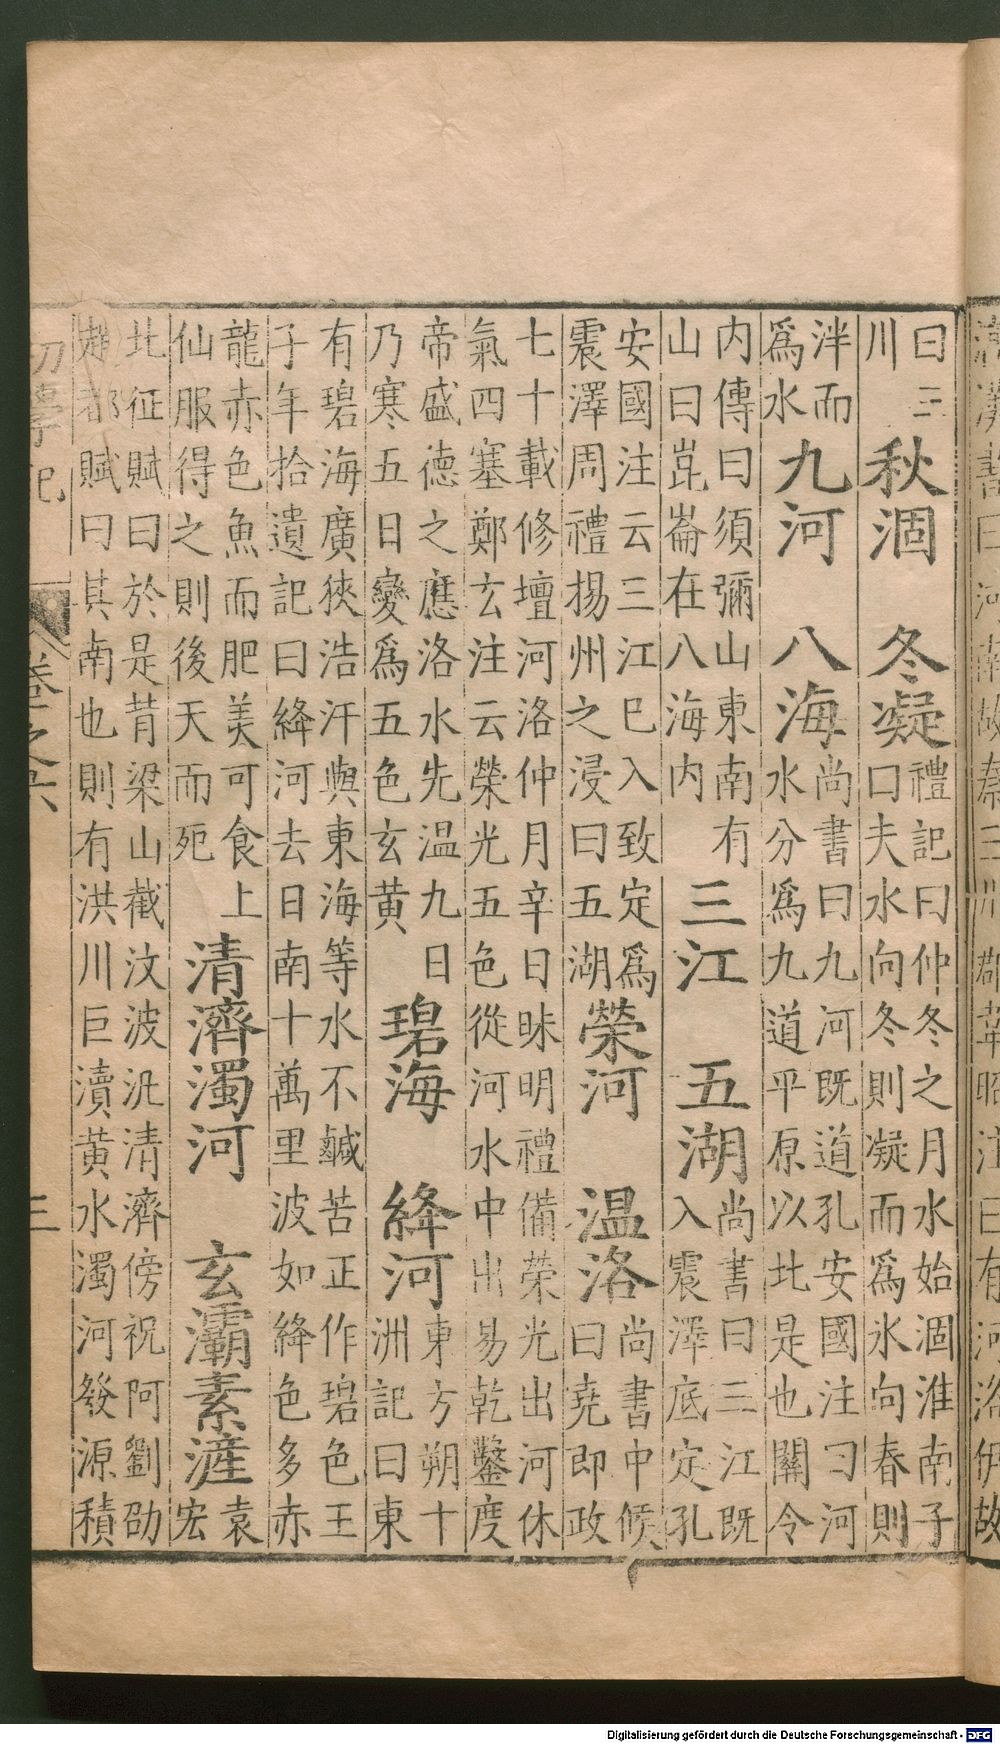 漢書曰河南故秦三川郡韋昭注曰有河洛伊故
曰三
川
秋涸　冬凝
禮記曰仲冬之月水始涸淮南子
曰夫水向冬則凝而爲氷向春則
泮而
爲水
九河　八海
尚書曰九河既道孔安國注曰河
水分爲九道平原以北是也關令
内傳曰須彌山東南有
山曰崑崙在八海内
三江　五湖
尚書曰三江既
入震澤底定孔
安國注云三江已入致定爲
震澤周禮揚州之浸曰五湖
榮河　温洛
尚書中候
曰堯即政
七十載修壇河洛仲月辛日昧明禮備榮光出河休
氣四塞鄭玄注云榮光五色從河水中出易乾鑿度
帝盛德之應洛水先温九日
乃寒五日變爲五色玄黄
碧海　絳河
東方朔十
洲記曰東
有碧海廣狹浩汗與東海等水不鹹苦正作碧色王
子年拾遺記曰絳河去日南十萬里波如絳色多赤
龍赤色魚而肥美可食上
仙服得之則後天而死
清濟濁河　玄灞素滻
袁
宏
北征賦曰於是背梁山截汶波汎清濟傍祝阿劉劭
趙都賦曰其南也則有洪川巨瀆黄水濁河發源積
初學記　卷之六　三
Digitalisierung gefördert durch die Deutsche Forschungsgemeinschaft - DFG